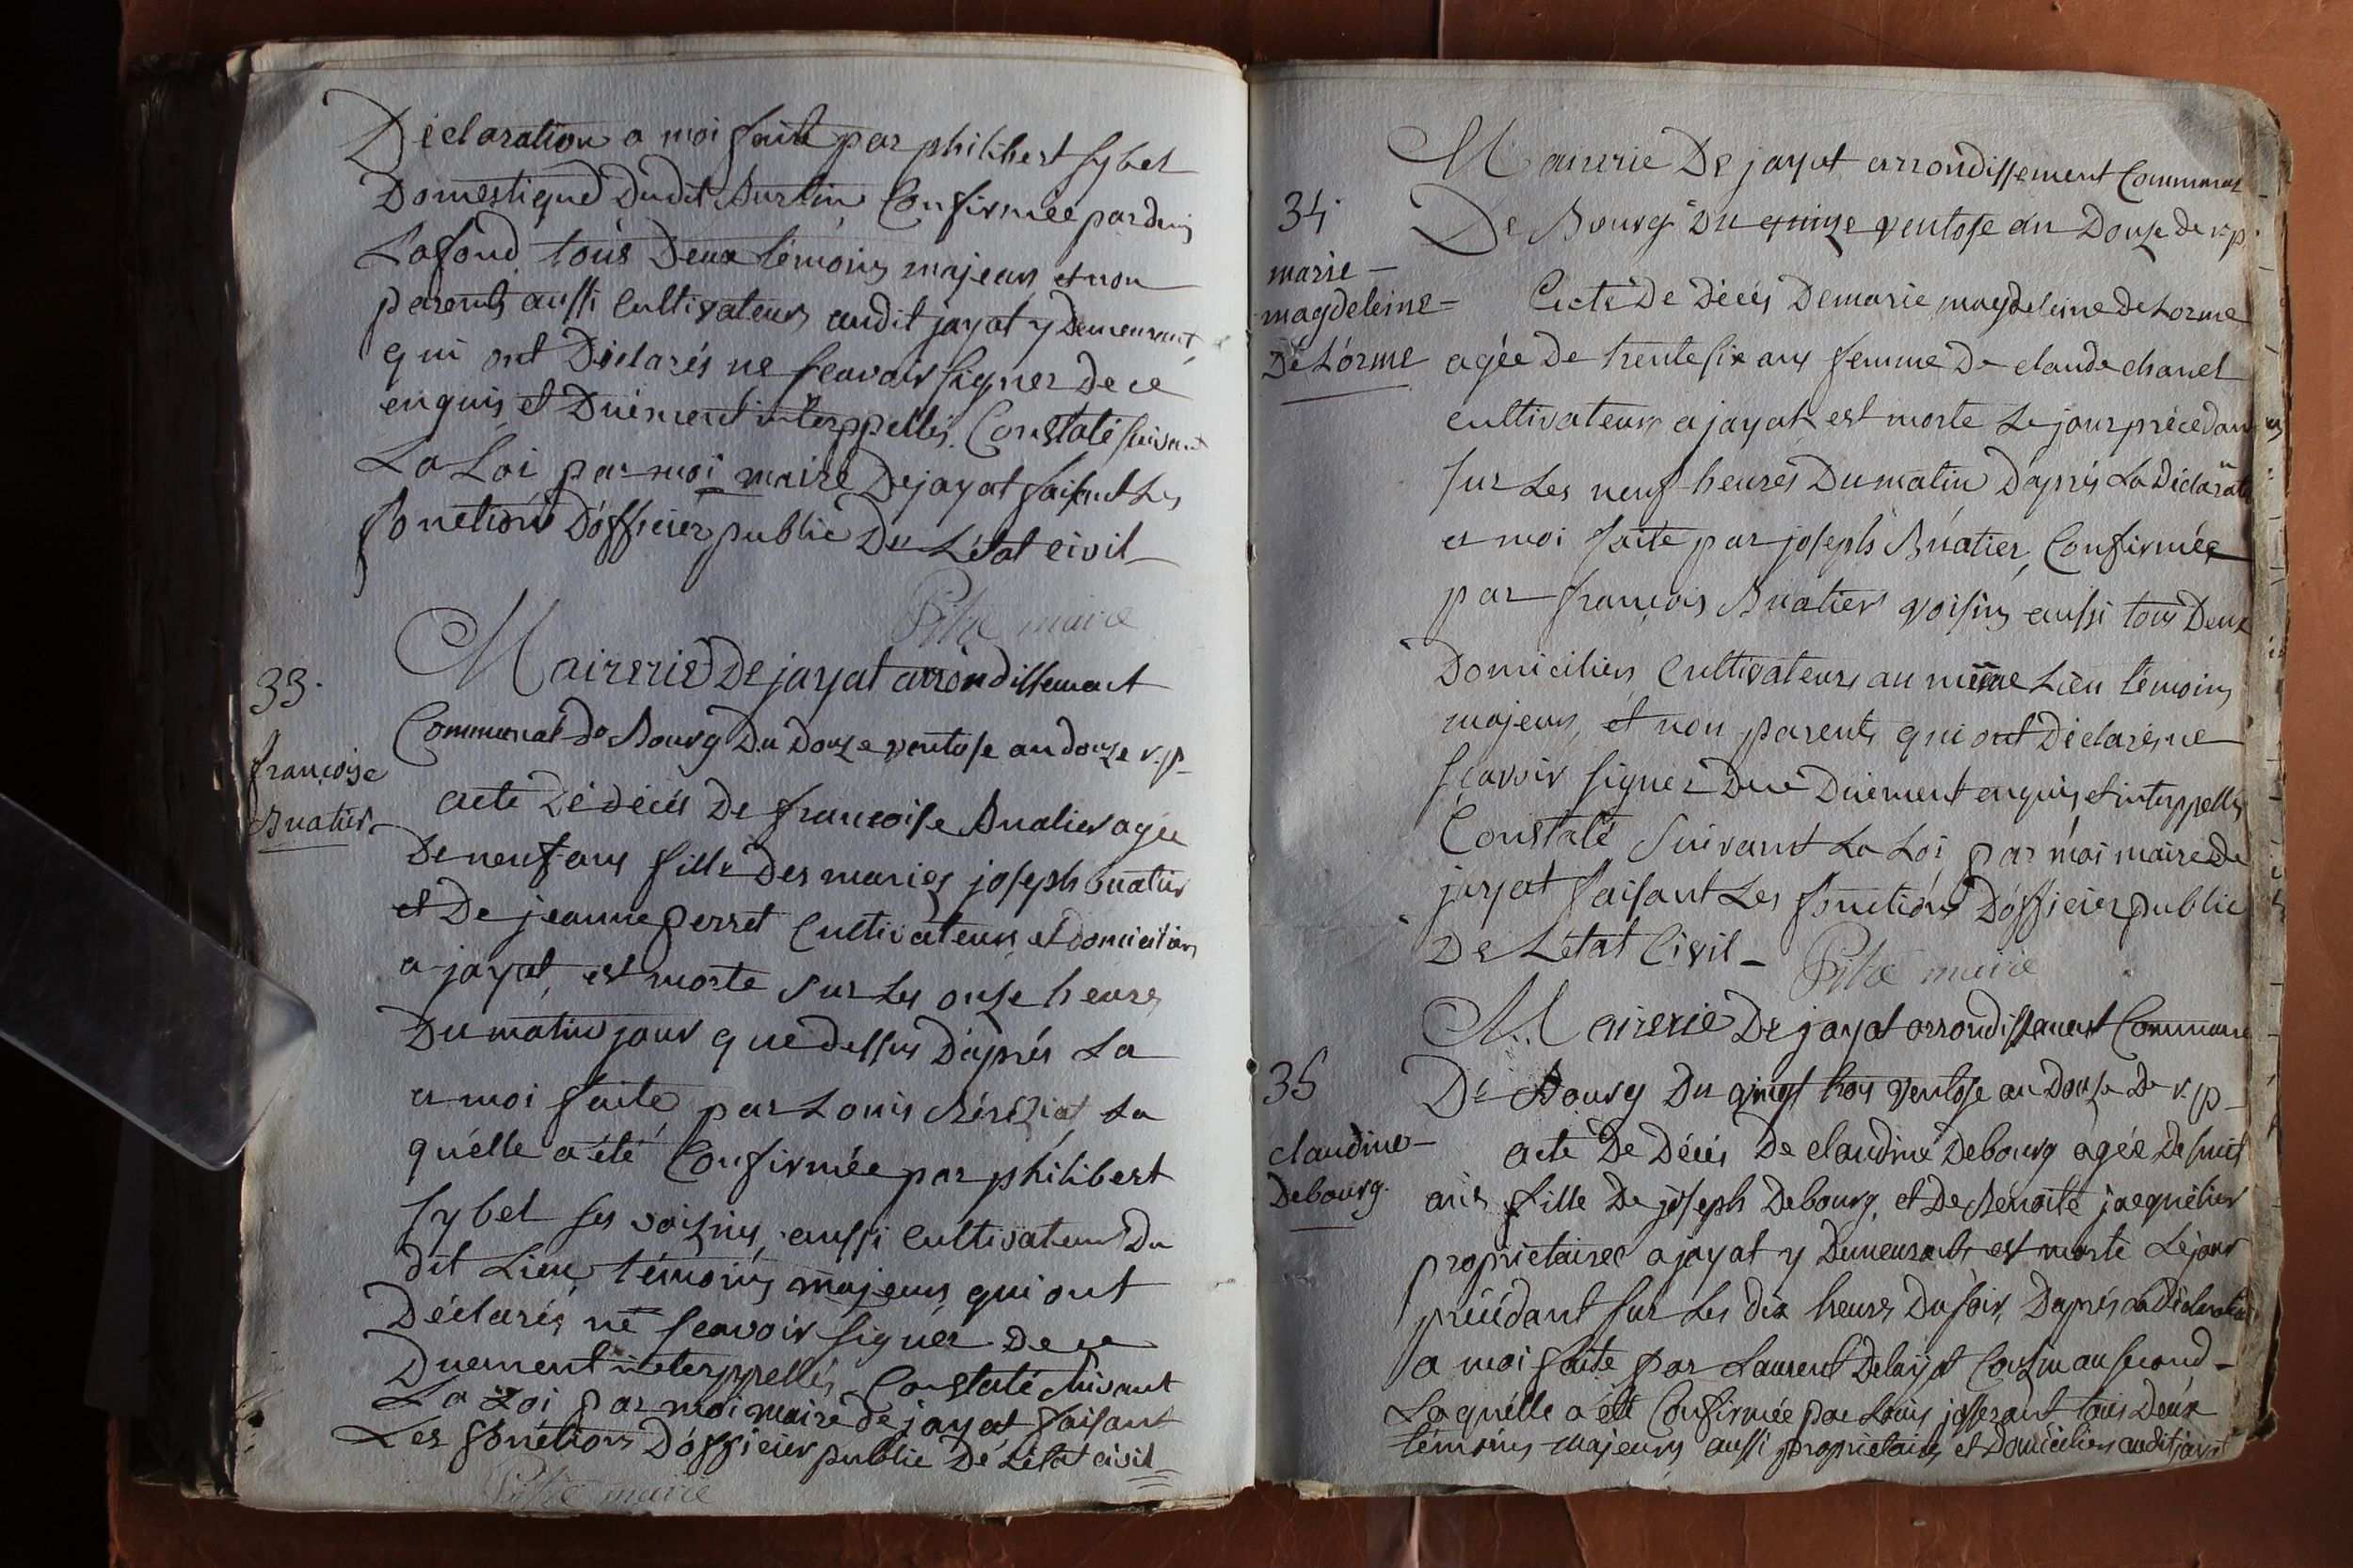 Déclaration a moi faite par philibert Sybel
Domestique Dudit Burtin Confirmée par
Lafond tous Deux témoins majeurs et non
parents aussi Cultivateurs audit jayat y Demeurant,
qui ont Déclarés ne scavoir signer de ce
enquis et Duëment interppellés. Constaté suivant
La Loi par moi maire Dejayat faisant Les
fonctions D'officier public De L'état civil
maire
33.
françoise
Buatier
Mairerie De jayat arrondissement
Communal de Bourg Du Douze ventose an douze r.p.
acte de décés De françoise Buatier agée
De neuf ans fille Des mariés joseph buatier
et De jeanne perret Cultivateurs et domiciliés
a jayat, est morte sur Les onze heures
Du matin jour que dessus D'aprés La
a moi faite, par Louis Béréziat La
quélle a été Confirmée par philibert
Sybel ses voisins, aussi Cultivateurs Du
dit Lieu, témoins majeurs qui ont
Déclarés ne scavoir signer De ce
Duement interppellés Constaté suivant
La Loi par moi maire de jayat faisant
Les fonctions D'officier public De L'état civil
maire
34.
marie
magdeleine
De Lorme
Mairerie De jayat arrondissement Communal
De Bourg Du quinze ventose an Douze de r.p.
acte De Décés De marie magdeleine De Lorme
agée De trente six ans femme De claude chanel
cultivateurs a jayat est morte Le jour précedant
sur Les neuf heures Du matin D'aprés La Déclarat
a moi faite par joseph Buatier, Confirmée
par françois Buatier voisins aussi tous Deux
Domiciliés Cultivateurs au même Lieu témoins
majeurs, et non parents qui ont Déclarés ne
scavoir signer De ce Duëment enquis et interppellés
Constaté suivant La Loi par moi maire De
jayat faisant Les fonctions D'officier public
De L'état Civil
maire
35
claudine
Debourg.
Mairerie De jayat arrondissement Communal
De Bourg Du vingt trois ventose an Douze De r.p.
acte De Décés De claudine Debourg agée De huit
ans fille De joseph Debourg, et De Benoite jacquétier
proprietaires a jayat y Demeurants est morte Le jour
précédant sur Les dix heures Du soir, D'aprés La Déclaration
a moi faite par Laurent Cousin au second
Laquélle a été Confirmée par Louis josserant tous Deux
témoins majeurs aussi proprietaires et Domiciliés audit jayat